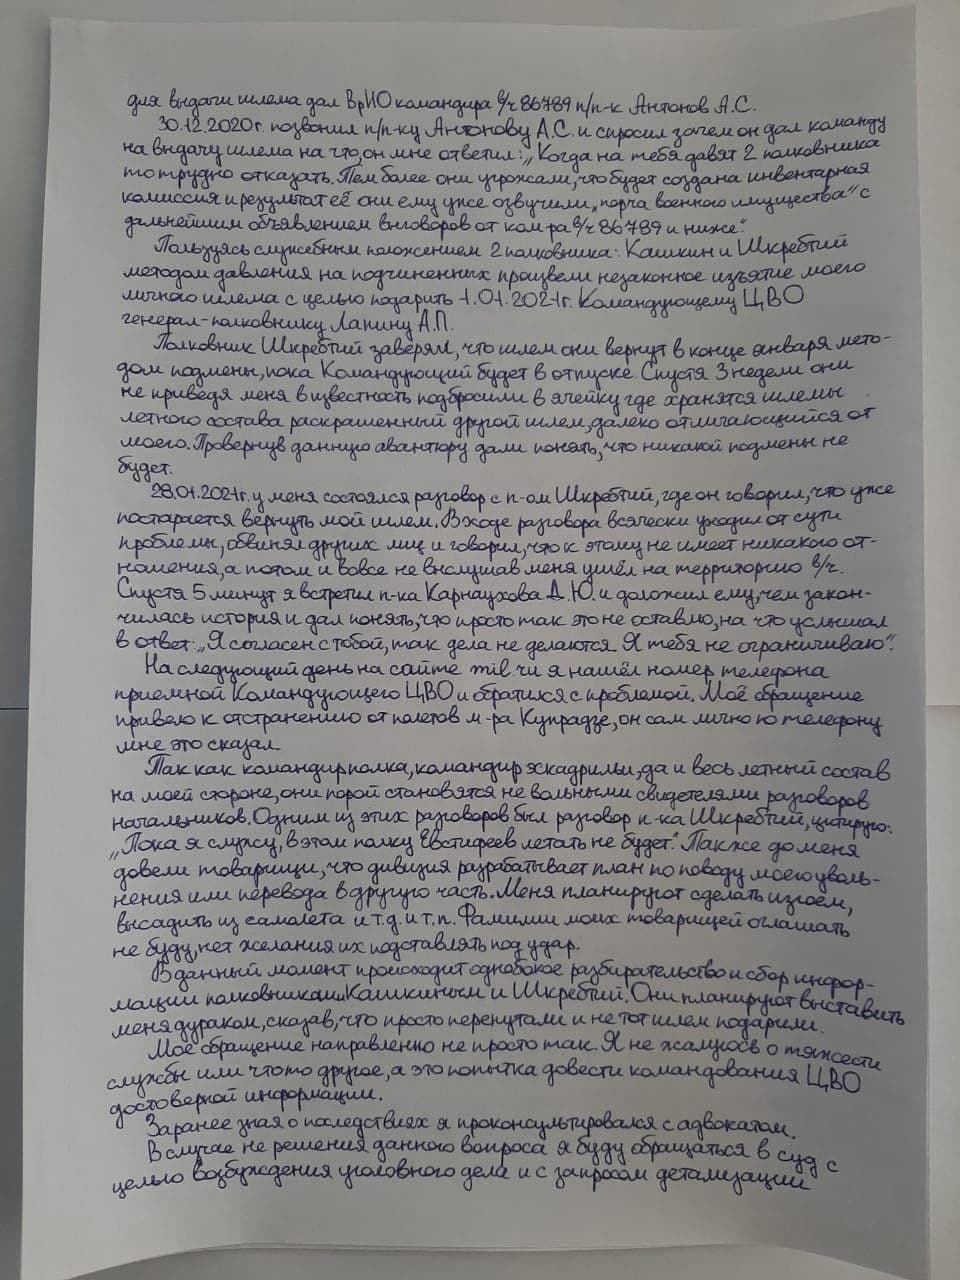 для выдачи шлема дал ВрИО командира в/ч 86789 п/п-к Антонов А.С.
30.12.2020г. позвонил п/п-ку Антонову А.С. и спросил зачем он дал команду
на выдачу шлема на что, он мне ответил: „Когда на тебя давят 2 полковника
то трудно отказать. Тем более они угрожали, что будет создана инвентарная
комиссия и результат её они ему уже озвучили „порча военного имущества" с
дальнейшим объявлением выговоров от ком-ра в/ч 86789 и ниже."
Пользуясь служебным положением 2 полковника: Кашкин и Шкребтий
методом давления на подчиненных произвели незаконное изъятие моего
личного шлема с целью подарить 1.01.2021г. Командующему ЦВО
генерал-полковнику Лапину А.П.
Полковник Шкребтий заверял, что шлем они вернут в конце января мето-
дом подмены, пока Командующий будет в отпуске. Спустя 3 недели они
не приведя меня в известность подбросили в ячейку где хранятся шлемы
летного состава раскрашенный другой шлем, далеко отличающийся от
моего. Провернув данную авантюру дали понять, что никакой подмены не
будет.
28.01.2021г. у меня состоялся разговор с п-ом Шкребтий, где он говорил, что уже
постарается вернуть мой шлем. В ходе разговора всячески уходил от сути
проблемы, обвинял других лиц и говорил, что к этому не имеет никакого от-
ношения, а потом и вовсе не выслушав меня ушёл на территорию в/ч.
Спустя 5 минут я встретил п-ка Карнаухова Д.Ю. и доложил ему, чем закон-
чилась история и дал понять, что просто так это не оставлю, на что услышал
в ответ: „Я согласен с тобой, так дела не делаются. Я тебя не ограничиваю".
На следующий день на сайте mil.ru я нашёл номер телефона
приемной Командующего ЦВО и обратился с проблемой. Моё обращение
привело к отстранению от полетов м-ра Купрадзе, он сам лично по телефону
мне это сказал.
Так как командир полка, командир эскадрильи, да и весь летный состав
на моей стороне, они порой становятся не вольными свидетелями разговоров
начальников. Одним из этих разговоров был разговор п-ка Шкребтий, цитирую:
„Пока я служу, в этом полку Евстифеев летать не будет". Так же до меня
довели товарищи, что дивизия разрабатывает план по поводу моего уволь-
нения или перевода в другую часть. Меня планируют сделать изгоем,
высадить из самолета и т.д. и т.п. Фамилии моих товарищей оглашать
не буду, нет желания их подставлять под удар.
В данный момент происходит однобокое разбирательство и сбор инфор-
мации полковниками Кашкиным и Шкребтий. Они планируют выставить
меня дураком, сказав, что просто перепутали и не тот шлем подарили.
Мое обращение направленно не просто так. Я не жалуюсь о тяжести
службы или что то другое, а это попытка довести командования ЦВО
достоверной информации.
Заранее зная о последствиях я проконсультировался с адвокатом.
В случае не решения данного вопроса я буду обращаться в суд с
целью возбуждения уголовного дела и с запросом детализации